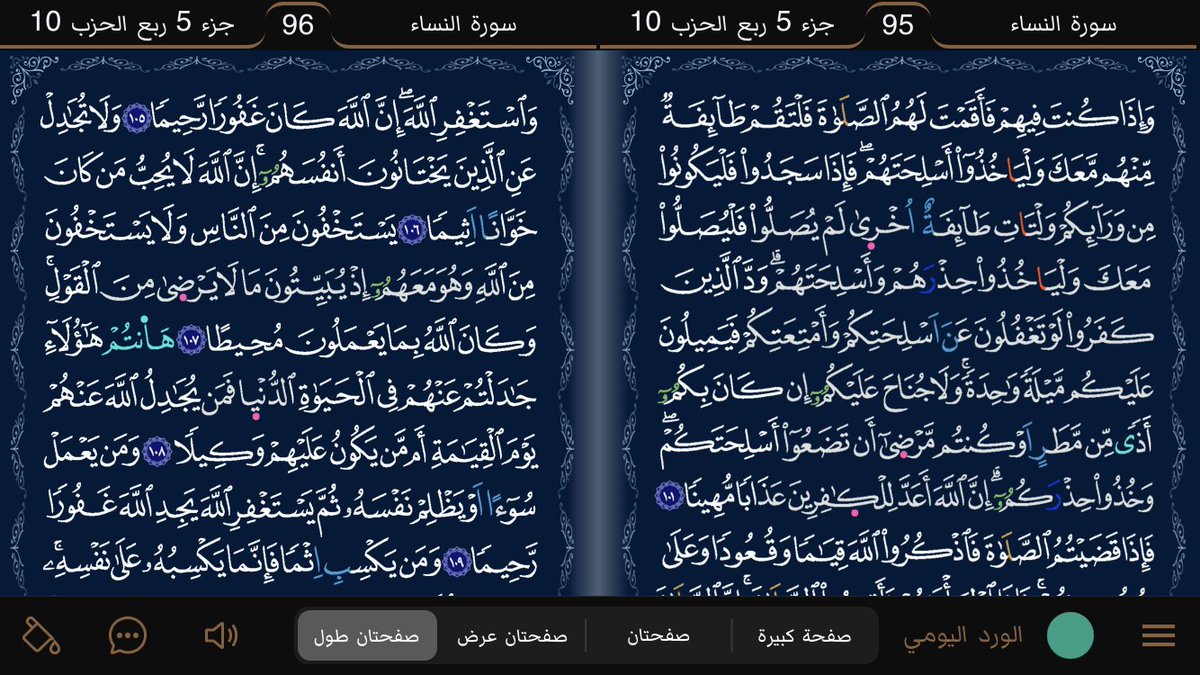 سورة النساء
95
جزء 5 ربع الحزب 10
وَإِذَا كُنتَ فِيهِمْ فَأَقَمْتَ لَهُمُ الصَّلَوٰةَ فَلْتَقُمْ طَآئِفَةٌ
مِّنْهُم مَّعَكَ وَلْيَاخُذُوٓاْ أَسْلِحَتَهُمْۖ فَإِذَا سَجَدُواْ فَلْيَكُونُواْ
مِن وَرَآئِكُمْ وَلْتَاتِ طَآئِفَةٌ اُخْر۪ىٰ لَمْ يُصَلُّواْ فَلْيُصَلُّواْ
مَعَكَ وَلْيَاخُذُواْ حِذْرَهُمْ وَأَسْلِحَتَهُمْۗ وَدَّ اَلَّذِينَ
كَفَرُواْ لَوْ تَغْفُلُونَ عَنَ اَسْلِحَتِكُمْ وَأَمْتِعَتِكُمْ فَيَمِيلُونَ
عَلَيْكُم مَّيْلَةٗ وَٰحِدَةٗۚ وَلَا جُنَاحَ عَلَيْكُمُۥٓ إِن كَانَ بِكُمُۥٓ
أَذىٗ مِّن مَّطَرٍ اَوْ كُنتُم مَّرْض۪ىٰٓ أَن تَضَعُوٓاْ أَسْلِحَتَكُمْۖ
وَخُذُواْ حِذْرَكُمُۥٓۗ إِنَّ اَللَّهَ أَعَدَّ لِلْكٰ۪فِرِينَ عَذَابٗا مُّهِينٗا ١٠١
فَإِذَا قَضَيْتُمُ الصَّلَوٰةَ فَاذْكُرُواْ اللَّهَ قِيَٰمٗا وَقُعُودٗا وَعَلَىٰ
سورة النساء
96
جزء 5 ربع الحزب 10
وَاسْتَغْفِرِ اِللَّهَۖ إِنَّ اَللَّهَ كَانَ غَفُورٗا رَّحِيمٗا ١٠٥ وَلَا تُجَٰدِلْ
عَنِ اِلَّذِينَ يَخْتَانُونَ أَنفُسَهُمُۥٓۚ إِنَّ اَللَّهَ لَا يُحِبُّ مَن كَانَ
خَوَّاناً اَثِيمٗا ١٠٦ يَسْتَخْفُونَ مِنَ اَلنَّاسِ وَلَا يَسْتَخْفُونَ
مِنَ اَللَّهِ وَهُوَ مَعَهُمُۥٓ إِذْ يُبَيِّتُونَ مَا لَا يَرْض۪ىٰ مِنَ اَلْقَوْلِۚ
وَكَانَ اَللَّهُ بِمَا يَعْمَلُونَ مُحِيطٗا ١٠٧ هَٰٓأَنتُمْ هَٰٓؤُلَآءِ
جَٰدَلْتُمْ عَنْهُمْ فِي اِلْحَيَوٰةِ اِلدُّنْي۪ا فَمَن يُجَٰدِلُ اللَّهَ عَنْهُمْ
يَوْمَ اَلْقِيَٰمَةِ أَم مَّن يَكُونُ عَلَيْهِمْ وَكِيلٗا ١٠٨ وَمَن يَعْمَلْ
سُوٓءاً اَوْ يَظْلِمْ نَفْسَهُۥ ثُمَّ يَسْتَغْفِرِ اِللَّهَ يَجِدِ اِللَّهَ غَفُورٗا
رَّحِيمٗا ١٠٩ وَمَن يَكْسِبِ اِثْمٗا فَإِنَّمَا يَكْسِبُهُۥ عَلَىٰ نَفْسِهِۦۚ
الورد اليومي
صفحة كبيرة
صفحتان
صفحتان عرض
صفحتان طول